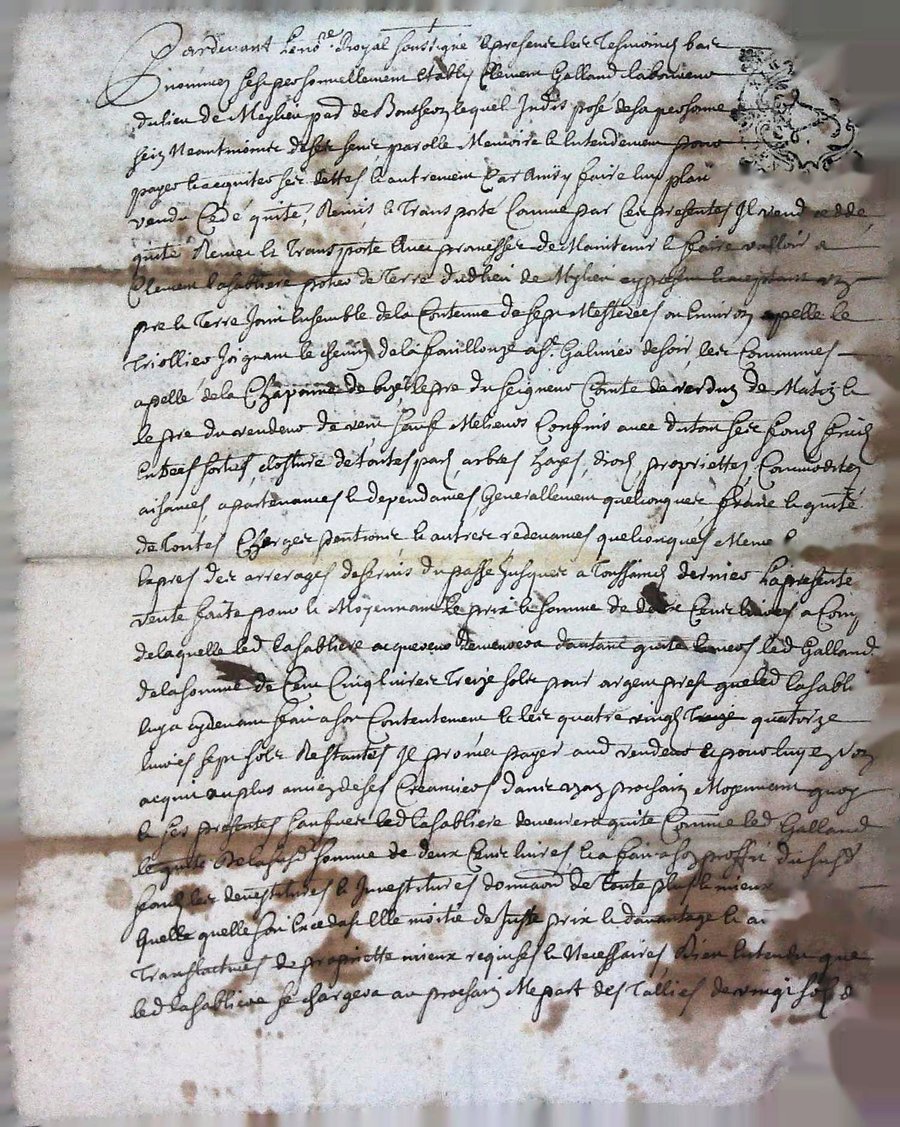 Pardevant le no.re Royal soussigné & presents les tesmoings bas
nommez s'est personnellement estably Clement Galland laboureur
du lieu de Meylieu de lequel Indis posé de sa personne
sein Neantmoints de ses sens parolle Memoire & Entendement pour
payer & acquiter ses dettes & autrement Car Ainsy faire luy plait
vendu Cedé quité, Remis & Transporté Comme par Ces presentes Il vend cedde
quitte Remet & Transporte Avec promesse de Maintenir & faire valloir a
Clement Lasabliere potier de Terre dudit lieu de Meylieu present & acceptant un
pre & Terre Joint Ensemble de la Contenue de sept Mesterées ou Environ appelle le
Triollier Joignant le chemin de la fouillouze a Galmier de soir les Communes
apellé de la Chaponne de bize le pre du seigneur Comte de verdun de Matin &
le pre du vendeur de vent sauf Melieurs Confins avec du tout ses fonds fruicts
Entrées sorties, closture de toutes parts, arbres hayes, droits, proprietter Commoditez
aisances, apartenances & dependances Generallement quelconques franc & quitte
de toutes Charges pentions & autres redevances quelconques Meme
& apres des arrerages desernis du passé Jusques a Toussaincts dernier La presente
vente faite pour & Moyennant le prix & somme de deux Cens livres a Com
de laquelle led Lasabliere acquereur demeurera dautant quitte Envers led Galland
de la somme de Cent Cinq livres Treize sols pour argent presté que led Lasabli
luy a cydevant fait a son Contentement & les quatre vingt Treize quatorze
livres sept sols Restantes Il promet payer aud vendeur & pour luy en son
acquit au plus ancien de ses Creanciers dans un an prochain Moyennant quoy
& ses presentes led Lasabliere demeurera quitte Comme led Galland
le quitte de lasusd somme de deux Cens livres, & a fait a son proffit du susd
fonds les devestitures & Investitures donnaon de toute plus & mieux
quelle quelle soit Excedast Elle moitié de Juste prix & davantage &
Translactives de proprietté mieux requises & Necessaires Bien Entendu que
led Lasabliere se chargera au prochain Mepart des Tallies de vingt sols